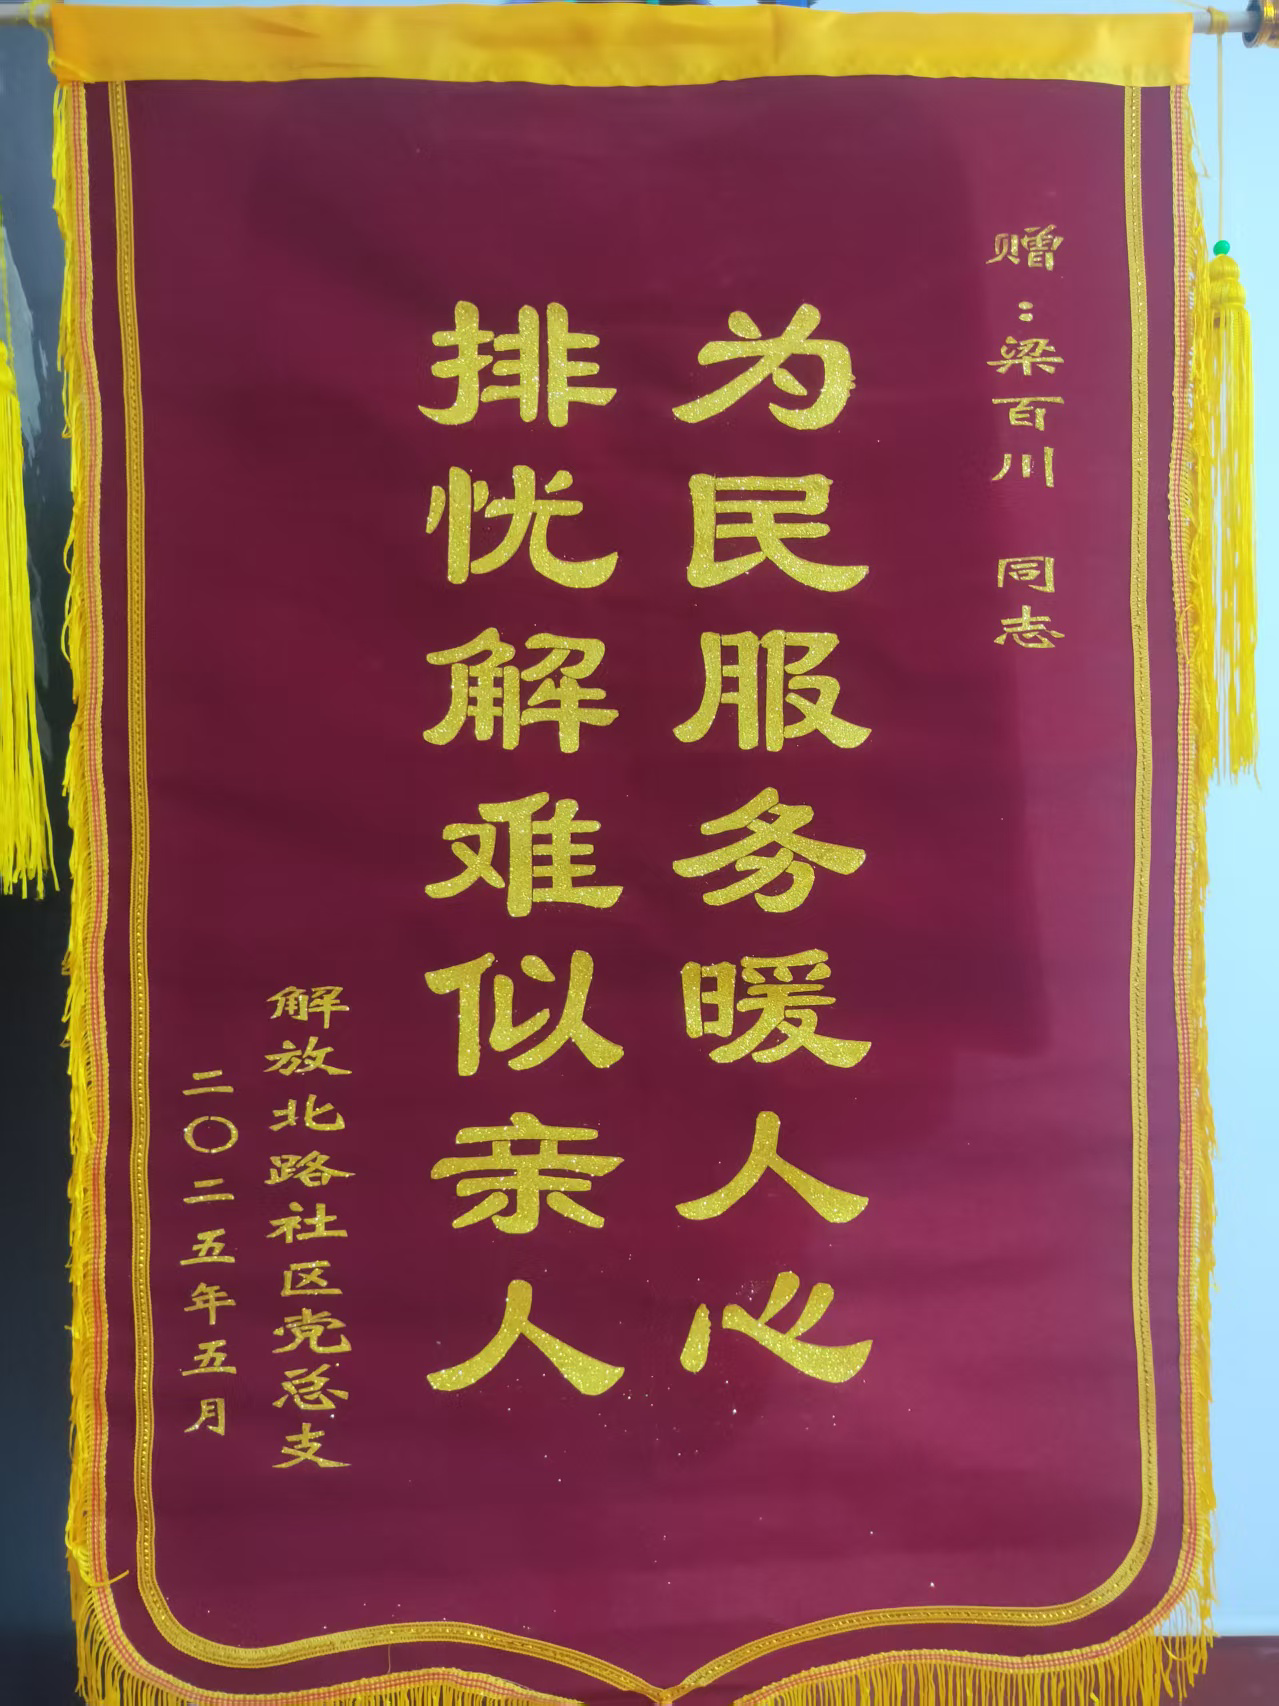 赠：梁百川 同志
为民服务暖人心
排忧解难似亲人
解放北路社区党总支
二〇二五年五月